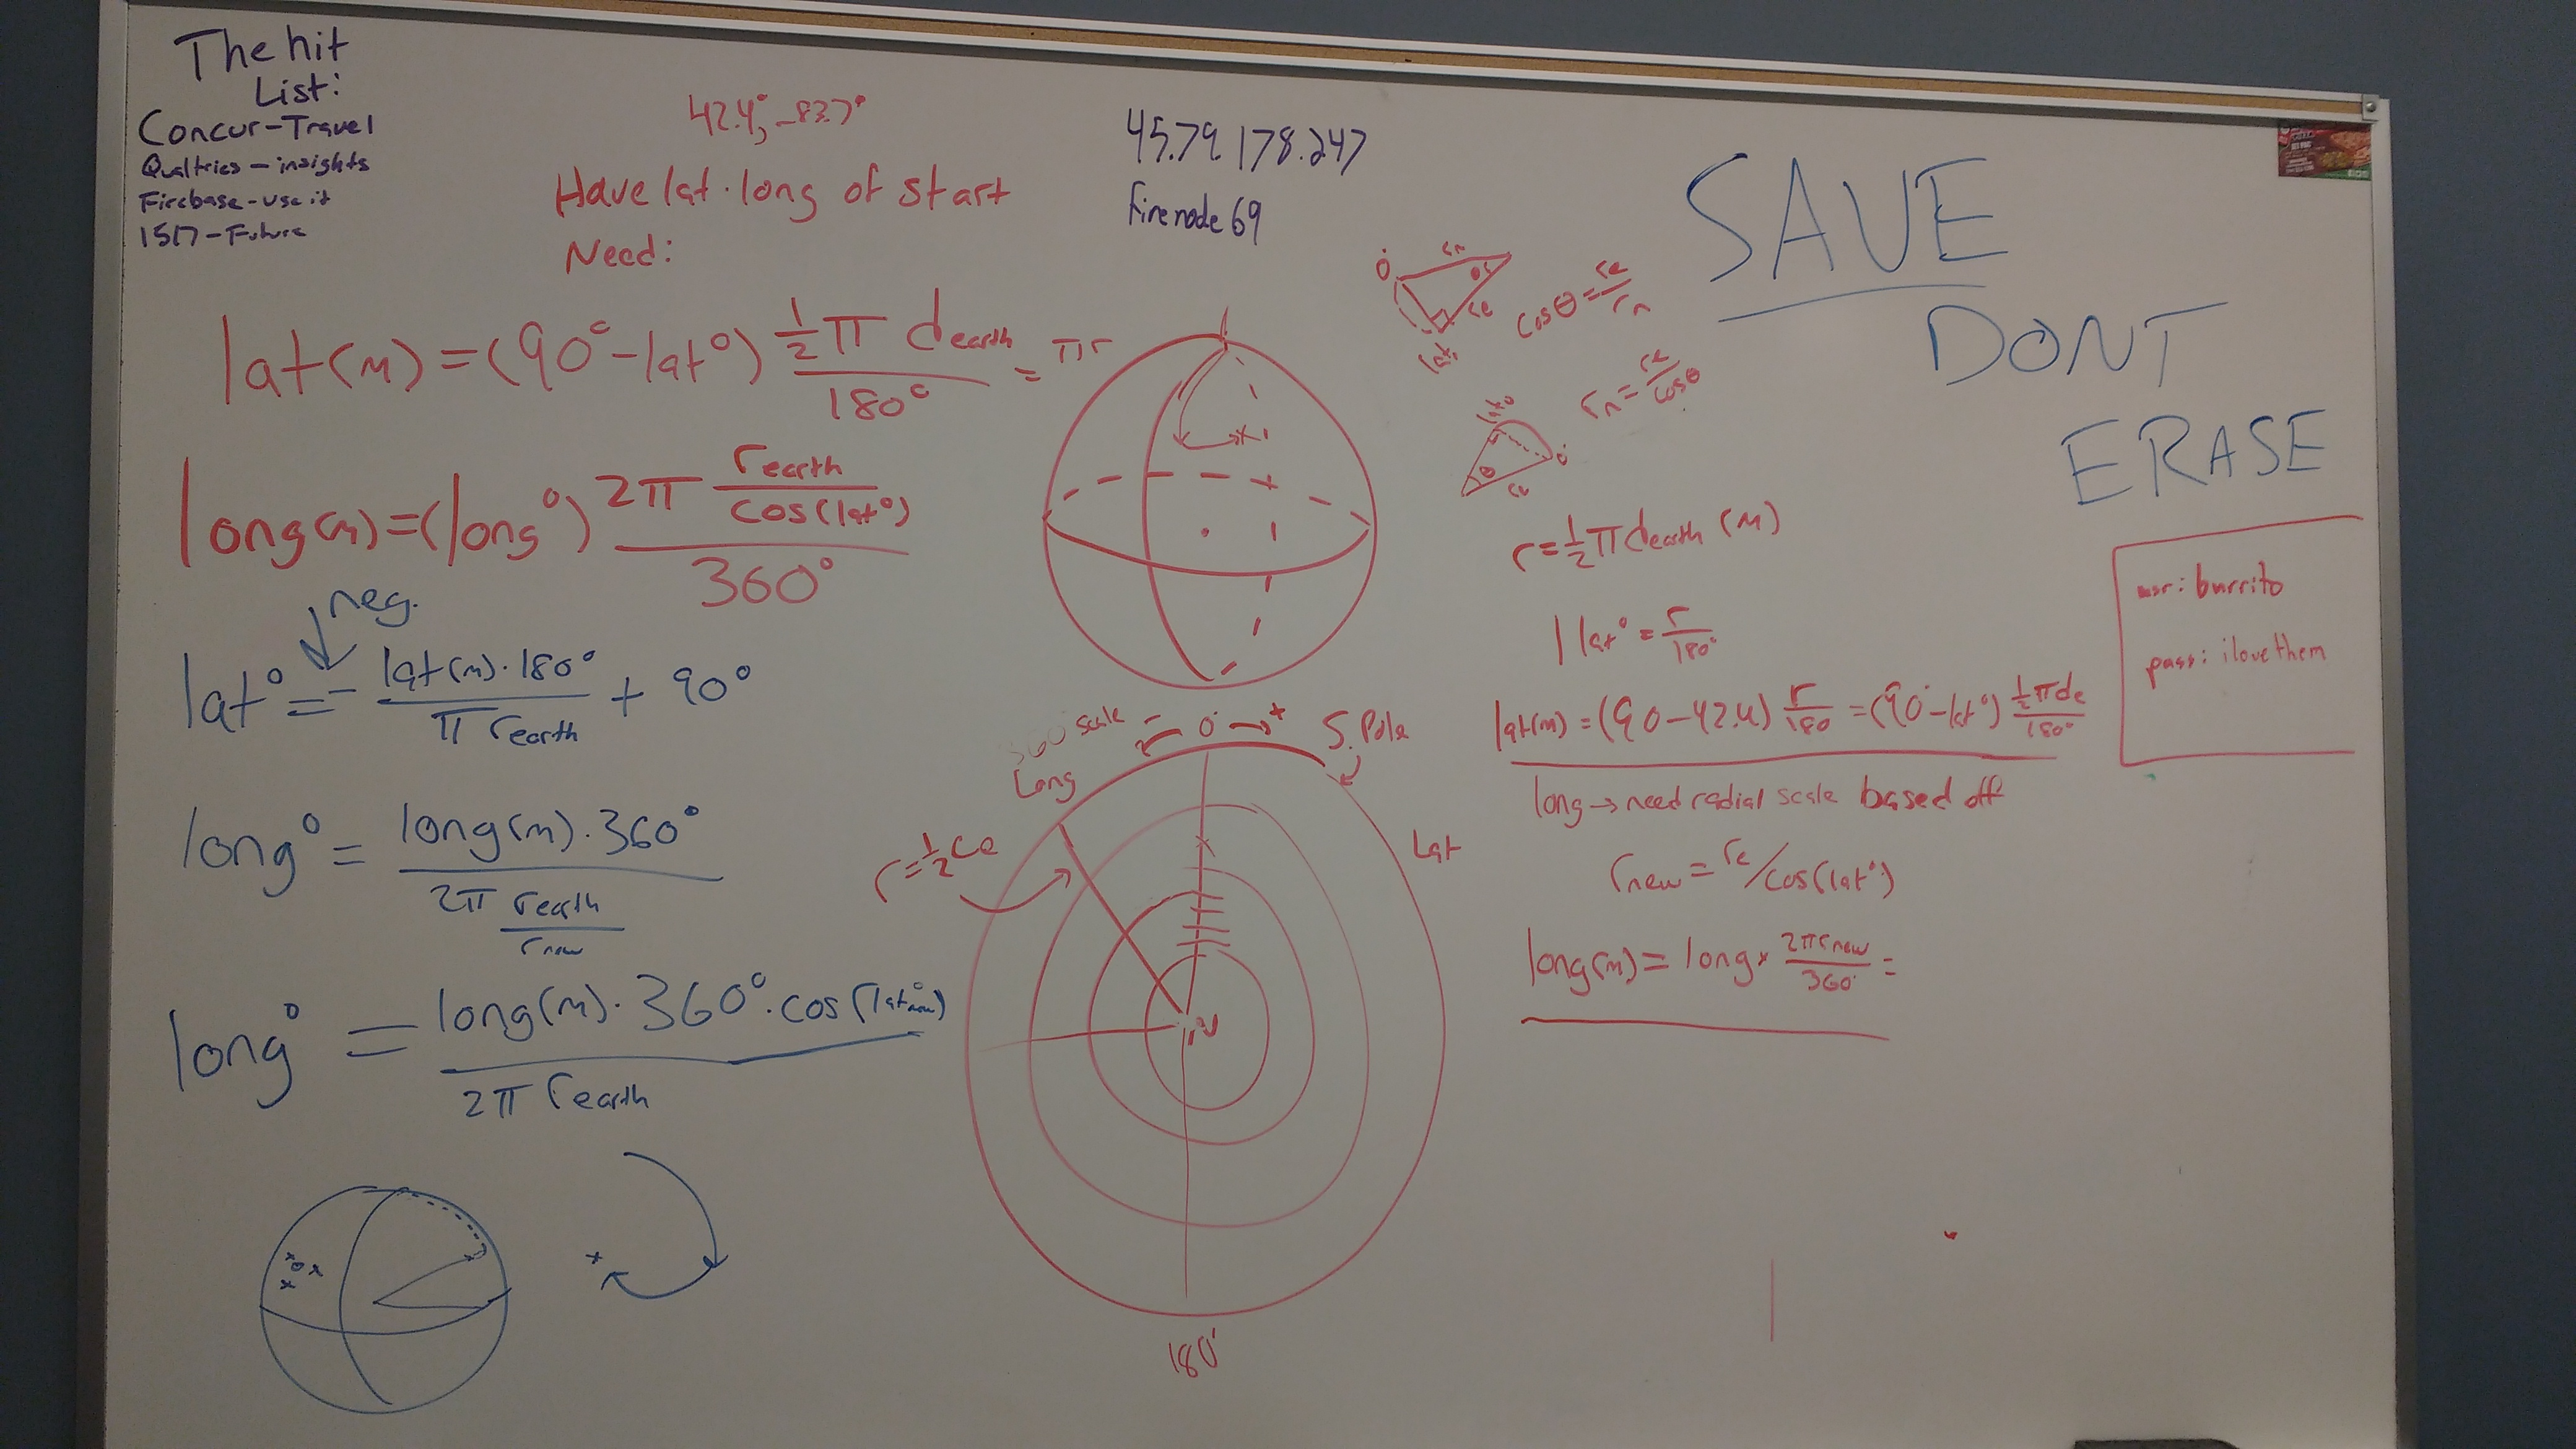 The hit
List:
Concur-Travel
Qualtrics - insights
Firebase - use it
1517 - Future
42.4°, -83.7°
Have lat. long of start
Need:
45.79.178.247
Firenode69
SAVE
DONT
ERASE
lat(m) = (90° - lat°) ½π dearth / 180° = πr
long(m) = (long°) 2π rearth / cos(lat°) / 360°
neg.
lat° = - lat(m)·180° / π rearth + 90°
long° = long(m)·360° / 2π rearth / rnew
long° = long(m)·360°·cos(lat°) / 2π rearth
cosθ = re / rn
rn = re / cosθ
r = ½π dearth (m)
1 lat° = r / 180°
lat(m) = (90 - 42.4) r / 180 = (90° - lat°) ½π de / 180°
long → need radial scale based off
rnew = re / cos(lat°)
long(m) = long × 2π rnew / 360° =
usr: burrito
pass: ilovethem
360 scale - 0° → +
S. Pole
Long
Lat
r = ½ Ce
N
180°